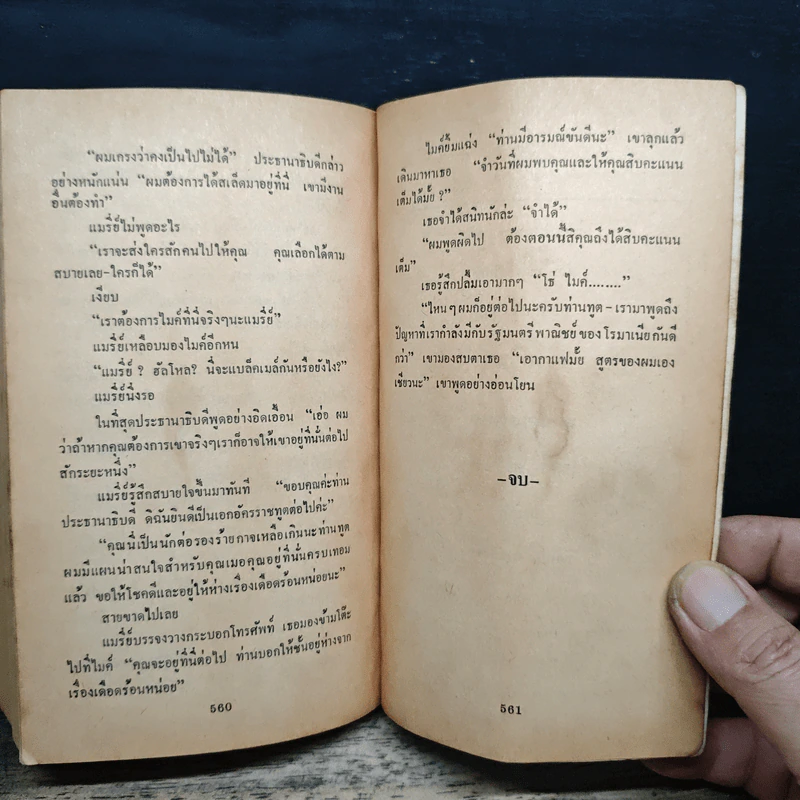 “ผมเกรงว่าคงเป็นไปไม่ได้” ประธานาธิบดีกล่าว
อย่างหนักแน่น “ผมต้องการได้สเล็ดมาอยู่ที่นี่ เขามีงาน
อื่นต้องทำ”
แมรี่ย์ไม่พูดอะไร
“เราจะส่งใครสักคนไปให้คุณ คุณเลือกได้ตาม
สบายเลย-ใครก็ได้”
เงียบ
“เราต้องการไมค์ที่นี่จริงๆนะแมรี่ย์”
แมรี่ย์เหลือบมองไมค์อีกหน
“แมรี่ย์ ? ฮัลโหล? นี่จะแบล็คเมล์กันหรือยังไง?”
แมรี่ย์นิ่งรอ
ในที่สุดประธานาธิบดีพูดอย่างอิดเอื้อน “เอ่อ ผม
ว่าถ้าหากคุณต้องการเขาจริงๆเราก็อาจให้เขาอยู่ที่นั่นต่อไป
สักระยะหนึ่ง”
แมรี่ย์รู้สึกสบายใจขึ้นมาทันที “ขอบคุณค่ะท่าน
ประธานาธิบดี ดิฉันยินดีเป็นเอกอัครราชทูตต่อไปค่ะ”
“คุณนี่เป็นนักต่อรองร้ายกาจเหลือเกินนะท่านทูต
ผมมีแผนน่าสนใจสำหรับคุณเมื่อคุณอยู่ที่นั่นครบเทอม
แล้ว ขอให้โชคดีและอยู่ให้ห่างเรื่องเดือดร้อนหน่อยนะ”
สายขาดไปเลย
แมรี่ย์บรรจงวางกระบอกโทรศัพท์ เธอมองข้ามโต๊ะ
ไปที่ไมค์ “คุณจะอยู่ที่นี่ต่อไป ท่านบอกให้ชั้นอยู่ห่างจาก
เรื่องเดือดร้อนหน่อย”
560
ไมค์ยิ้มแฉ่ง “ท่านมีอารมณ์ขันดีนะ” เขาลุกแล้ว
เดินมาหาเธอ “จำวันที่ผมพบคุณและให้คุณสิบคะแนน
เต็มได้มั้ย ?”
เธอจำได้สนิทนักล่ะ “จำได้”
“ผมพูดผิดไป ต้องตอนนี้สิคุณถึงได้สิบคะแนน
เต็ม”
เธอรู้สึกปลื้มเอามากๆ “โธ่ ไมค์........”
“ไหนๆผมก็อยู่ต่อไปนะครับท่านทูต-เรามาพูดถึง
ปัญหาที่เรากำลังมีกับรัฐมนตรีพาณิชย์ของโรมาเนียกันดี
กว่า” เขามองสบตาเธอ “เอากาแฟมั้ย สูตรของผมเอง
เชียวนะ” เขาพูดอย่างอ่อนโยน
-จบ-
561